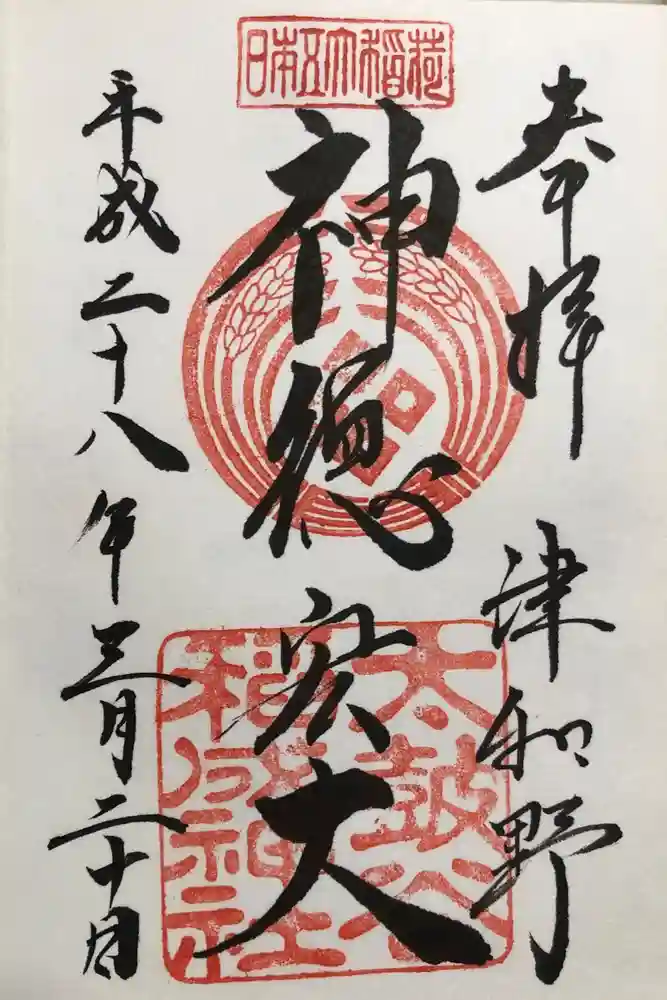 日本五大稲荷
奉拝
津和野
神徳宏大
太鼓谷
稲成神社
平成二十八年三月二十日